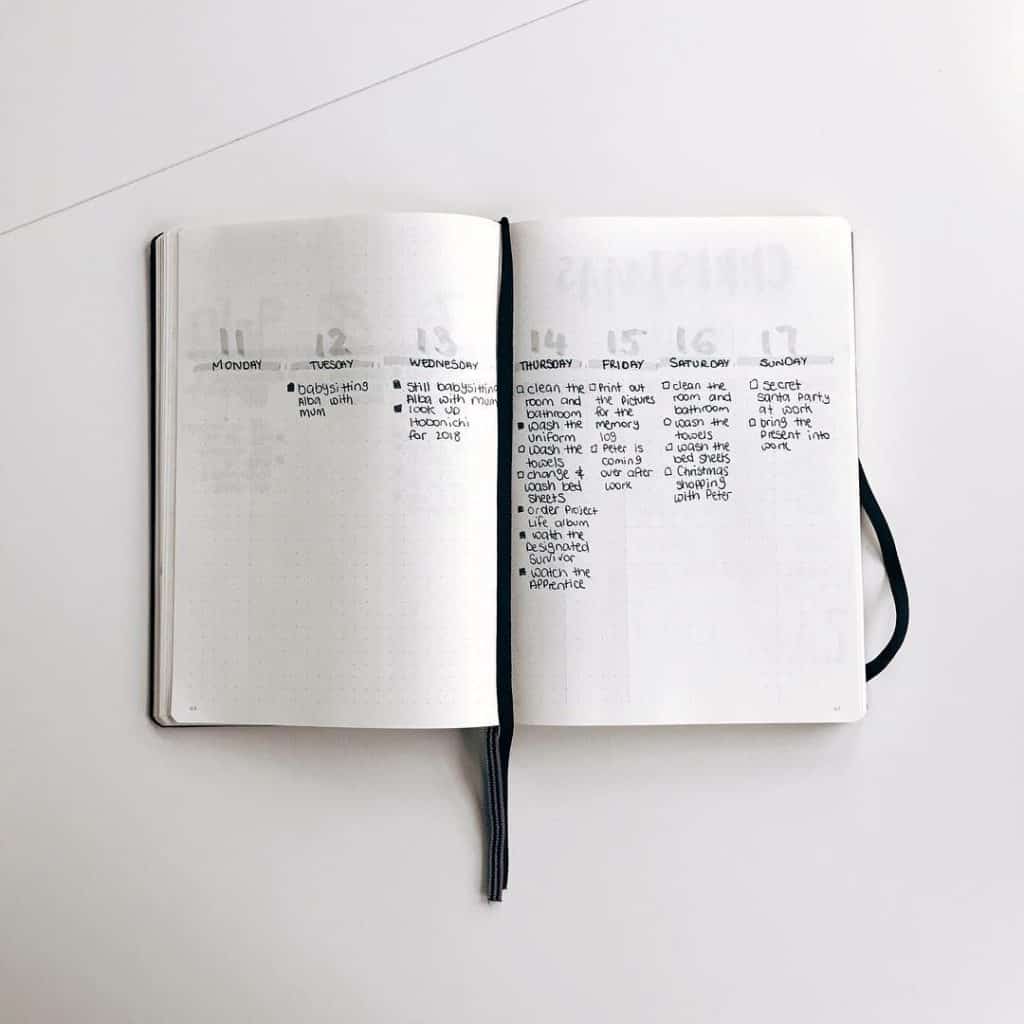 11
MONDAY
12
TUESDAY
babysitting
Alba with
mum
13
WEDNESDAY
Still babysitting
Alba with mum
look up
Hobonichi
for 2018
CHRISTMAS
14
THURSDAY
clean the
room and
bathroom
wash the
uniform
wash the
towels
change &
wash bed
sheets
order Project
Life album
wath the
Designated
Survivor
watch the
Apprentice
15
FRIDAY
Print out
the pictures
for the
memory
log
Peter is
coming
over after
work
16
SATURDAY
clean the
room and
bathroom
wash the
towels
wash the
bed sheets
Christmas
shopping
with Peter
17
SUNDAY
Secret
Santa Party
at work
bring the
present into
work